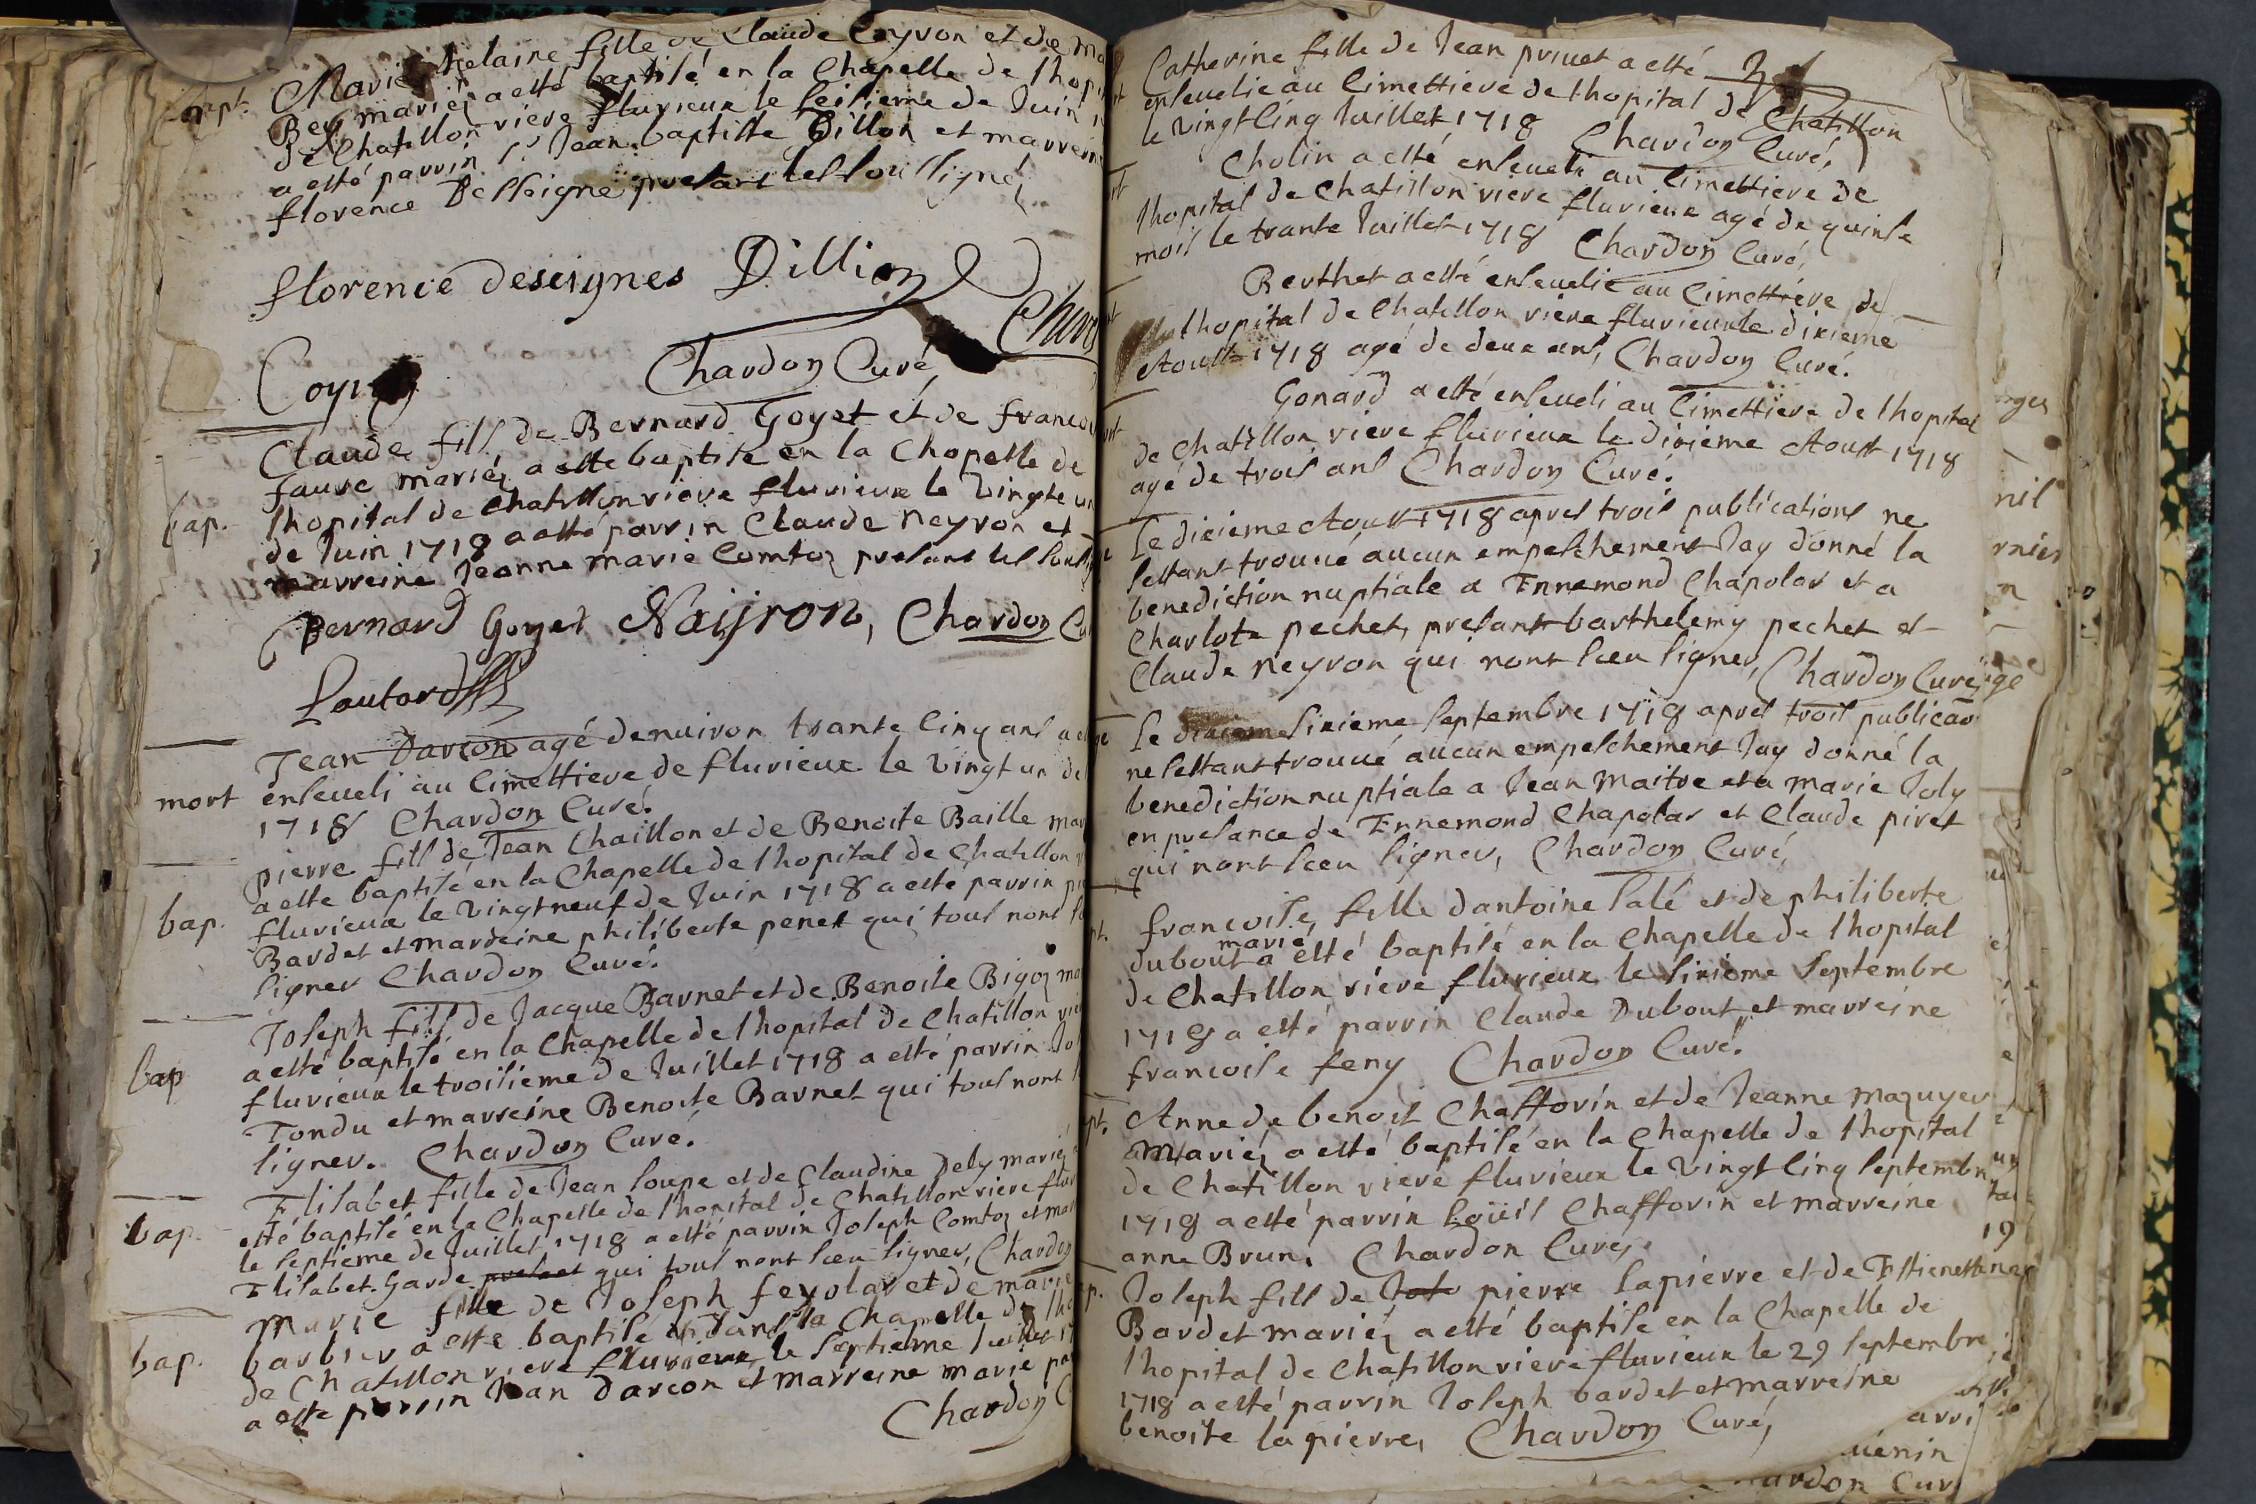 Marie helaine fille de Claude Coyron et de
bapt. Bey mariéz a esté baptisé en la Chapelle de lhopi
de Chatillon riere fluvieux le seisieme de Juin
a esté parrin Sr Jean baptiste Dillon et marrein
florence Desseigne presans les soussignéz
florence deseignes Dillion
Chardon Curé
Claude fils de Bernard Goyet et de francoi
faure mariéz a este baptisé en la Chapelle de
bap. lhopital de chatillon riere fluvieux le vingte un
de Juin 1718 a esté parrin Claude neyron et
marreine Jeanne marie Comtoz presans les sous
Bernard Goyet Naijron, Chardon Cu
Lautard
Jean Darcon agé denuiron trante cinq ans a e
mort enseueli au Cimettiere de fluvieux le vingt un de
1718 Chardon Curé.
pierre fils de Jean Chaillon et de Benoite Baille mar
a este baptisé en la Chapelle de lhopital de Chatillon r
bap. fluvieux le vingt neuf de Juin 1718 a esté parrin pi
Bardet et mareine philiberte penet qui tous nont s
signer Chardon Curé.
Joseph fils de Jacque Barnet et de Benoite Bigoz ma
a esté baptisé en la Chapelle de lhopital de Chatillon rie
bap fluvieux le troisieme de Juillet 1718 a esté parrin Jo
Tondu et marreine Benoite Barnet qui tous nont s
signer. Chardon Curé.
Elisabet fille de Jean soupe et de Claudine Dely mariéz
bap. esté baptisé en la Chapelle de lhopital de Chatillon riere fluv
le septieme de Juillet 1718 a esté parrin Joseph Comtoz et mar
Elisabet Garde presant qui tous nont sceu signer, Chardon
marie fille de Joseph feyolas et de marie
bap. barbier a este baptisé dans la Chapelle de lho
de Chatillon riere fluvieux le septieme Juillet 17
a este parrin Jean darcon et marreine marie pa
Chardon C
Catherine fille de Jean priuet a esté
enseuelie au Cimettiere de lhopital de Chatillon
le vingt cinq Juillet 1718 Chardon Curé,
Cholin a esté enseueli au Cimettiere de
lhopital de Chatillon riere fluvieux agé de quinse
mois le trante Juillet 1718 Chardon Curé,
Berthet a esté enseuelie au Cimettiere de
lhopital de Chatillon riere fluvieux le dixieme
Aoust 1718 agé de deux ans, Chardon Curé.
Gonard a esté enseueli au Cimettiere de lhopital
de Chatillon riere fluvieux le dixieme Aoust 1718
agé de trois ans Chardon Curé.
Le dixieme Aoust 1718 apres trois publications ne
sestant trouué aucun empeschement Jay donné la
benediction nuptiale a Ennemond Chapolar et a
Charlote pechet, presant barthelemy pechet et
Claude neyron qui nont sceu signer, Chardon Curé,
Le sixieme septembre 1718 apres trois publicaõ
ne sestant trouué aucun empeschement Jay donné la
benediction nuptiale a Jean Maitre et a marie Joly
en presance de Ennemond Chapolar et Claude piret
qui nont sceu signer, Chardon Curé,
francoise, fille dantoine salé et de philiberte
dubout mariéz a esté baptisé en la Chapelle de lhopital
de Chatillon riere fluvieux le sixieme septembre
1718 a esté parrin Claude Dubout et marreine
francoise feny Chardon Curé.
Anne de benoist Chafforin et de Jeanne mazuyer
Mariéz a esté baptisé en la Chapelle de lhopital
de Chatillon riere fluvieux le vingt cinq septembre
1718 a esté parrin Loüis Chafforin et marreine
anne Brun. Chardon Curé,
Joseph fils de pierre Lapierre et de Estienette
Bardet mariéz a esté baptisé en la Chapelle de
lhopital de Chatillon riere fluvieux le 29 septembre
1718 a esté parrin Joseph bardet et marreine
benoite la pierre, Chardon Curé,